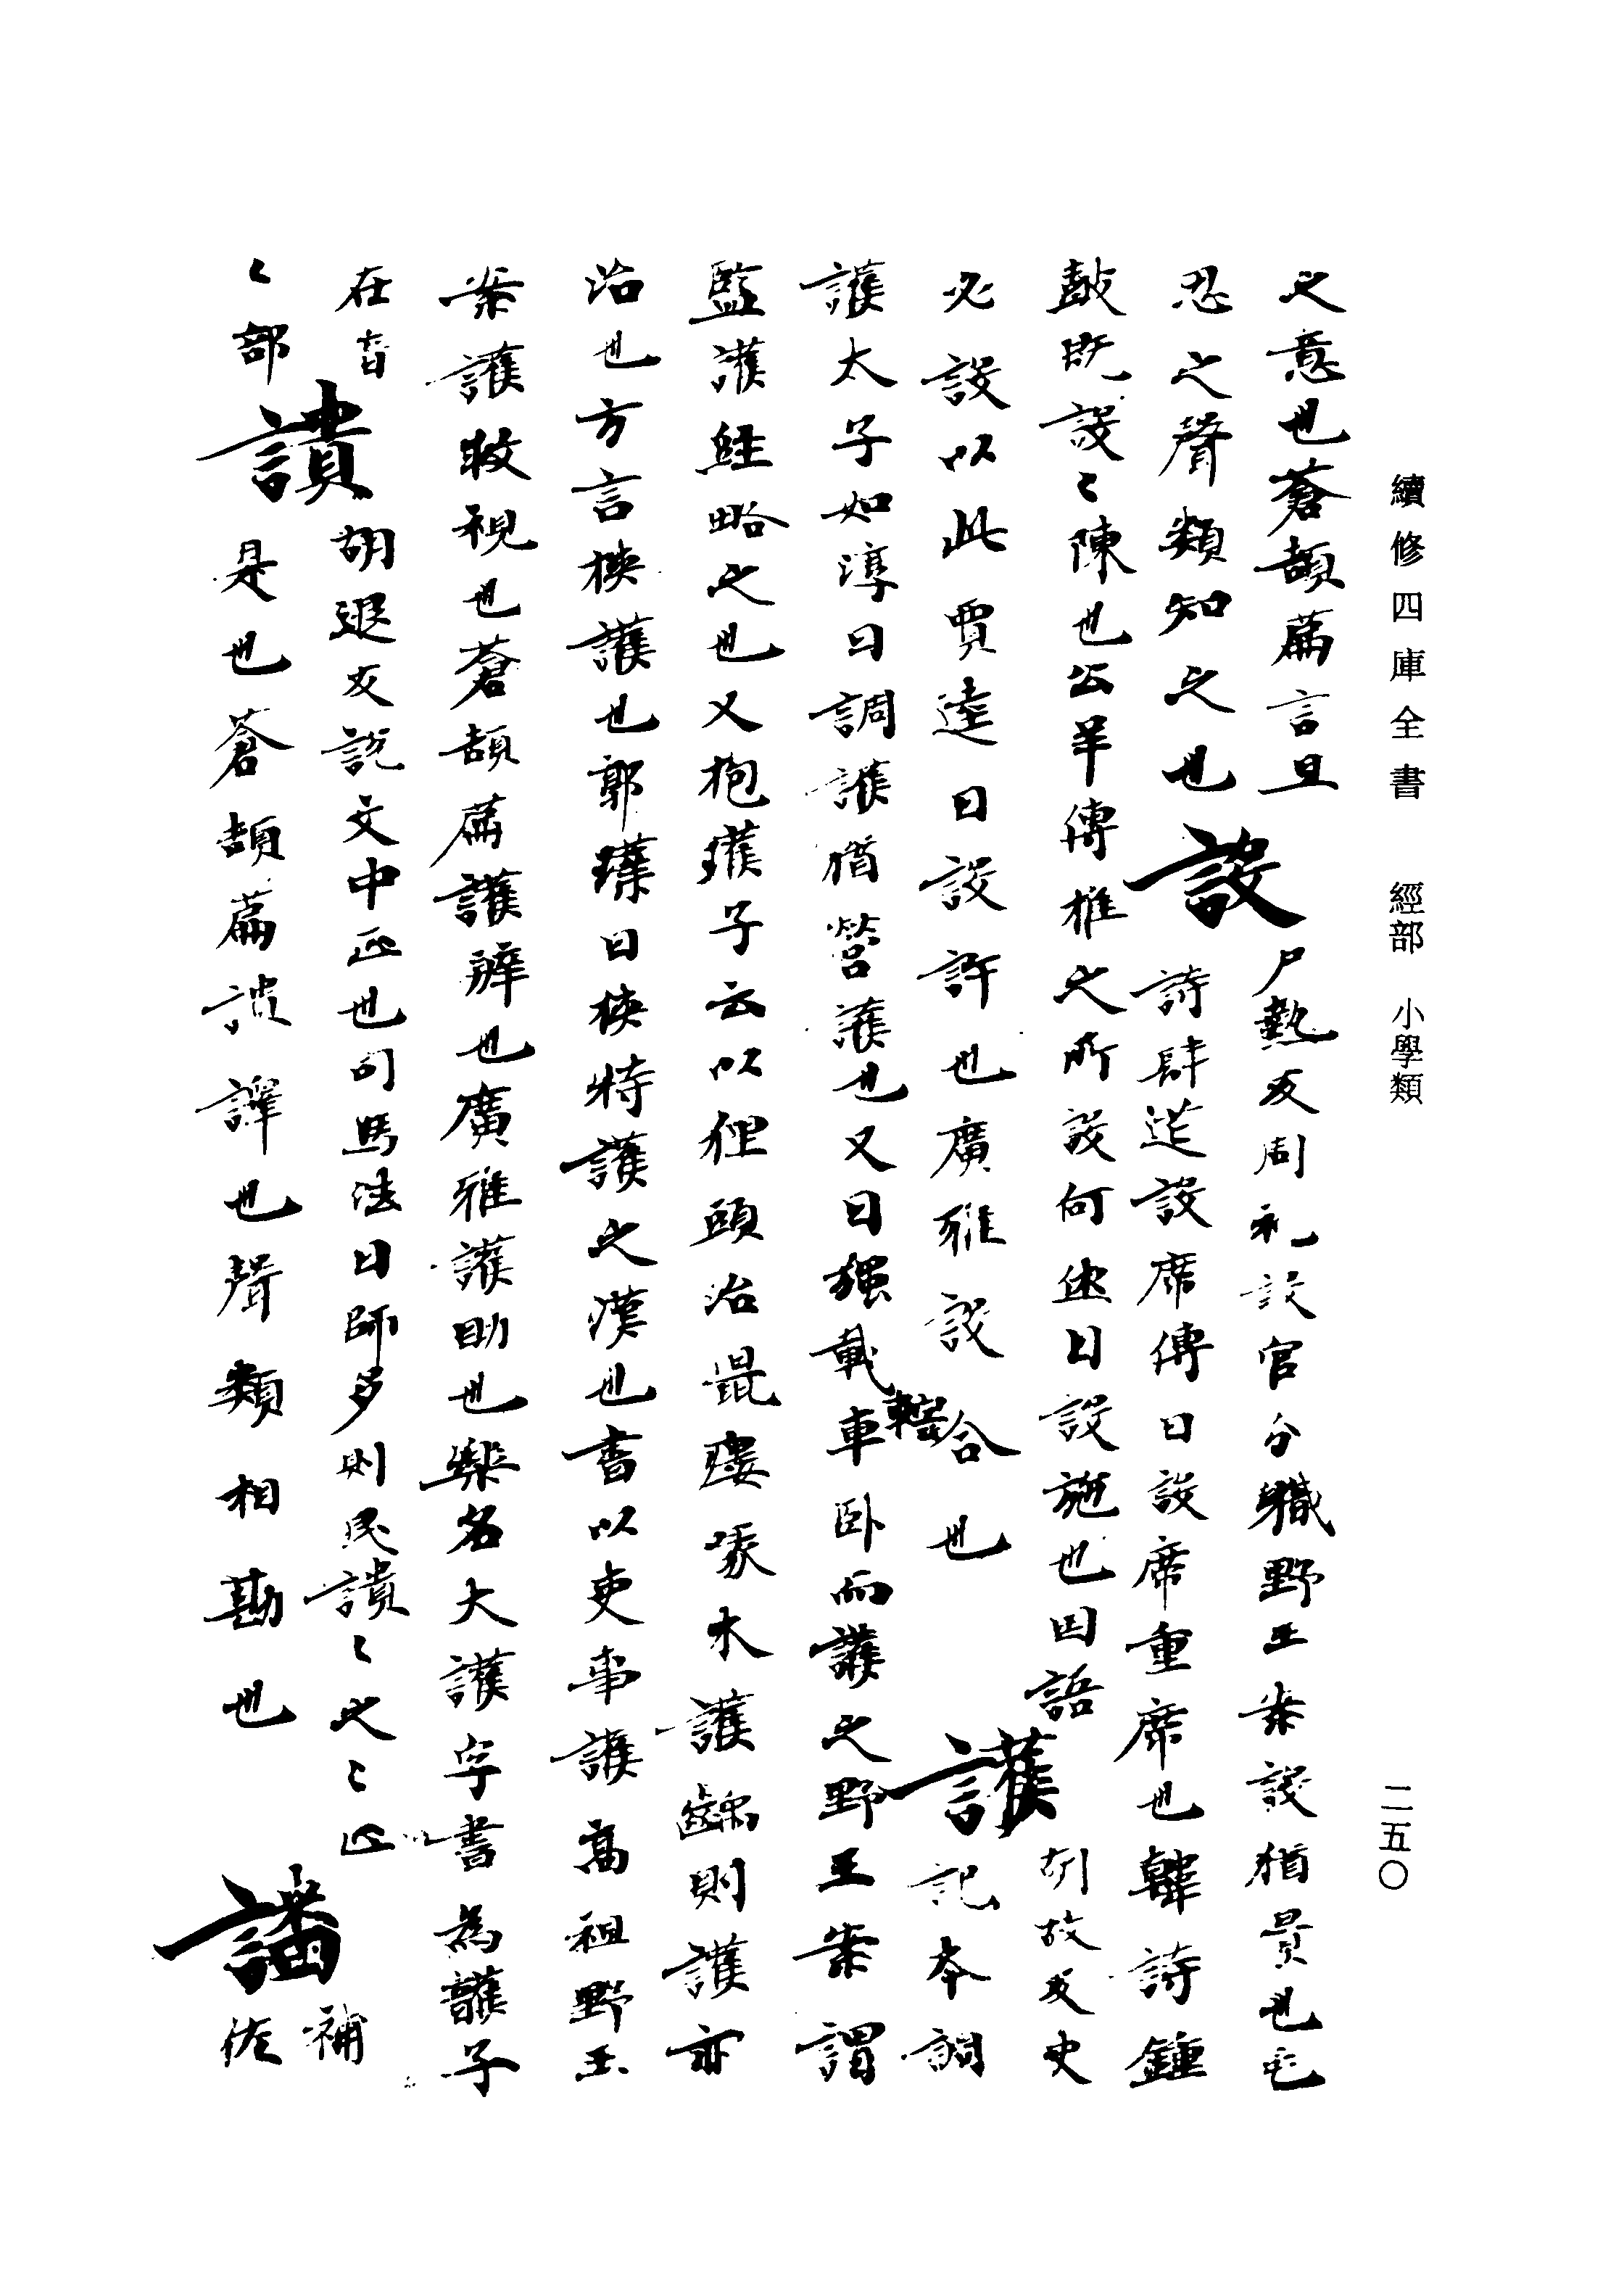 續修四庫全書 經部 小學類 二五〇
之意也蒼頡篇言旦 設 尸熱反周礼設官分職野王案設猶置也毛
忍之聲類知之也 詩肆筵設席傳曰設席重席也韓詩鍾
鼓既設〻陳也公羊傳權之所設何休曰設施也国語
必設以此賈逵曰設許也廣雅設合也 護 胡故反史記本調
護太子如淳曰調護猶營護也又曰強載輜車卧而護之野王案謂
監護
略之也又抱
子云以狸頭治
木護
則護亦
治也方言挾護也郭璞曰挾持護之漢也書以吏事護高祖野王
案護救視也蒼頡篇護辨也廣雅護助也樂名大護字書為頀字
在音
〻部 讃 胡退反說文中止也司馬法曰師多則民讃〻之〻止
是也蒼頡篇
譯也聲類相勘也 譒 補佐